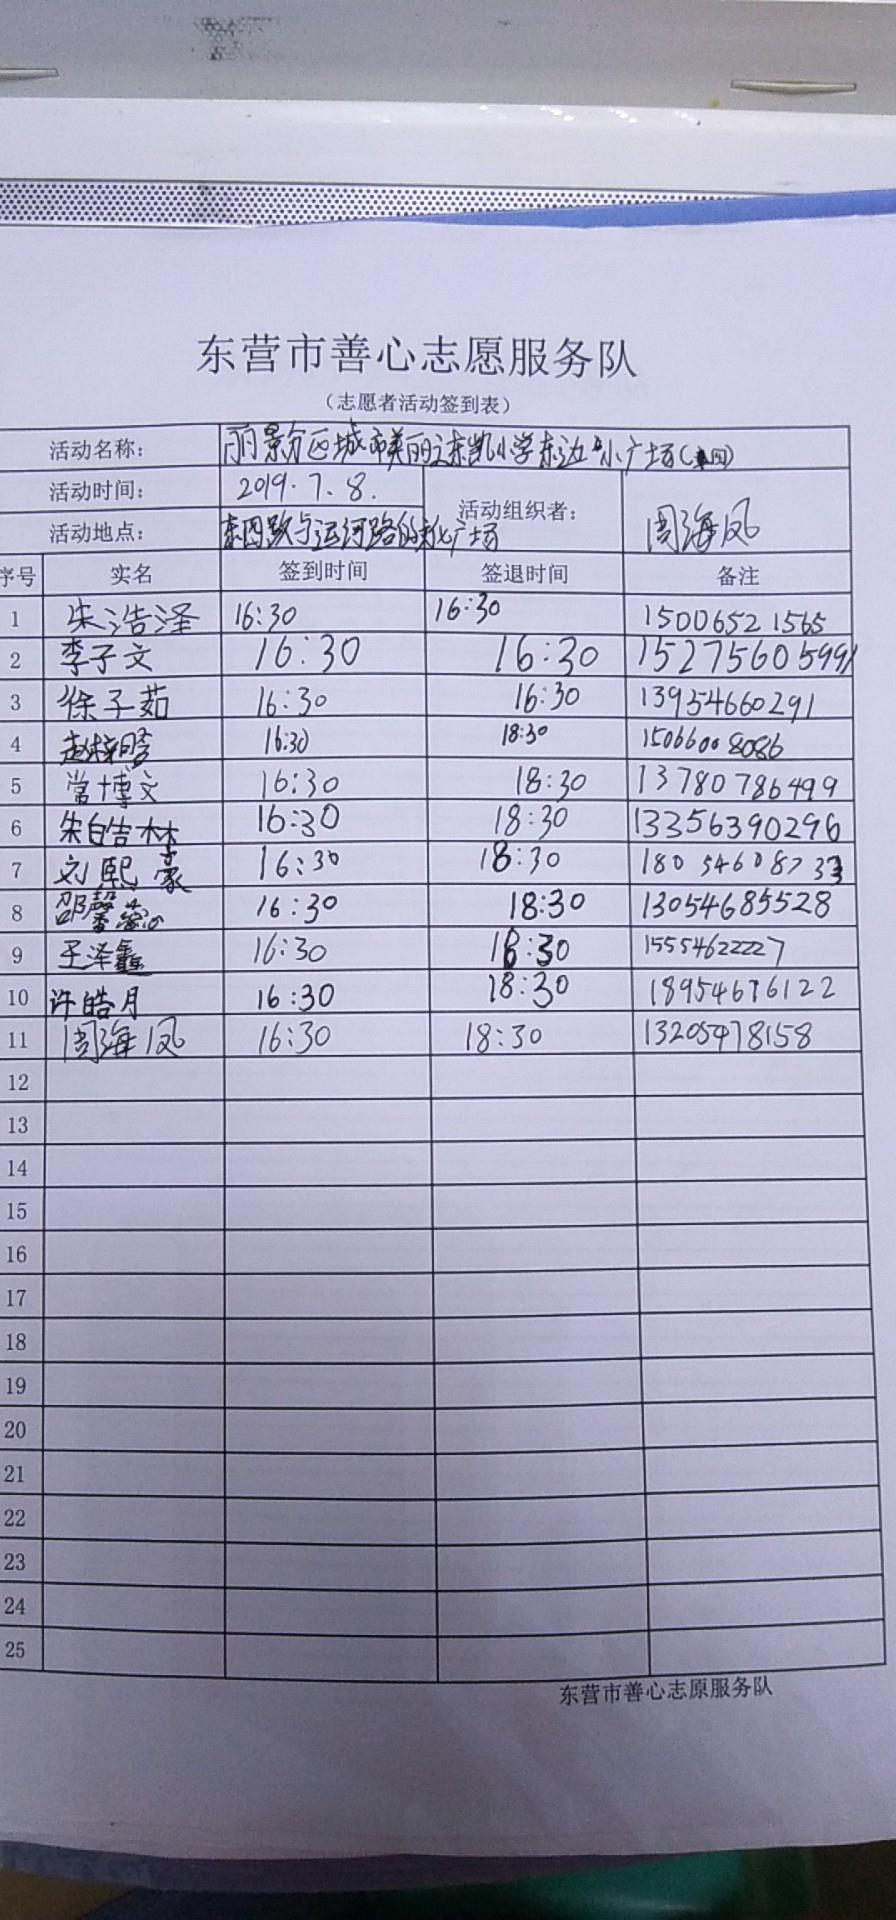 东营市善心志愿服务队
（志愿者活动签到表）
活动名称： 丽景分区城市美丽之东凯小学东边小广场（四）
活动时间： 2019.7.8. 活动组织者： 周海凤
活动地点： 东四路与运河路的文化广场
序号 实名 签到时间 签退时间 备注
1 朱浩泽 16:30 16:30 15006521565
2 李子文 16:30 16:30 15275605991
3 徐子茹 16:30 16:30 13954660291
4 赵梓 16:30 18:30 15066008086
5 常博文 16:30 18:30 13780786499
6 朱皓林 16:30 18:30 13356390296
7 刘熙豪 16:30 18:30 18054608733
8 邵馨 16:30 18:30 13054685528
9 王泽鑫 16:30 18:30 15554622227
10 许皓月 16:30 18:30 18954676122
11 周海凤 16:30 18:30 13205478158
12
13
14
15
16
17
18
19
20
21
22
23
24
25
东营市善心志原服务队